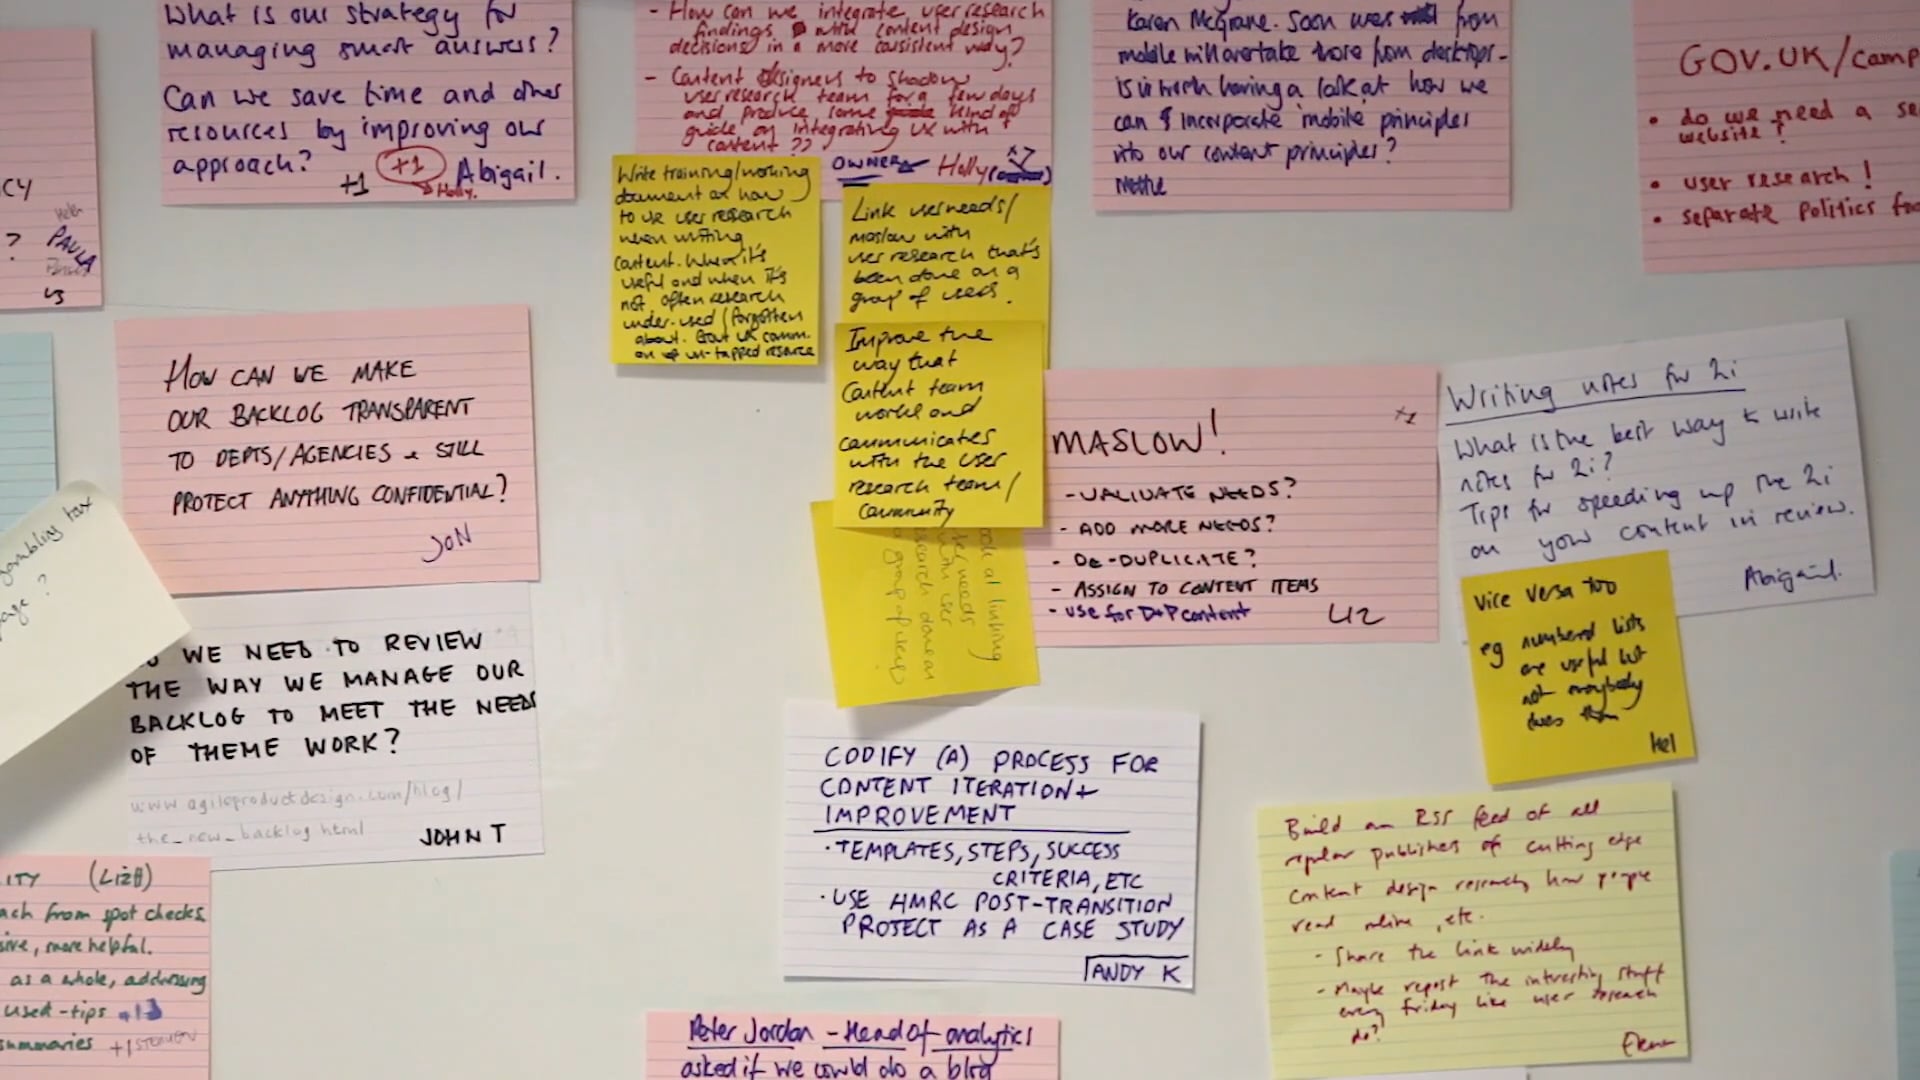 What is our strategy for
managing smart answers?
Can we save time and other
resources by improving our
approach?
+1
+1
Holly.
Abigail.
- How can we integrate user research
findings with content design
decisions in a more consistent way?
- Content designers to shadow
user research team for a few days
and produce some kind of
guide on integrating UX with
content ??
OWNER
Holly
Karen McGrane. Soon users from
mobile will overtake those from desktops -
is it worth having a look at how we
can incorporate mobile principles
into our content principles?
Nettie
GOV.UK/camp
• do we need a se
website?
• user research!
• separate politics fro
CY
?
Helen
PAULA
Write training/working
document on how
to use user research
when writing
content. When it's
useful and when it's
not often research
under-used/forgotten
about. Great UX comm.
on un-tapped resource
Link user needs/
maslow with
user research that's
been done on a
group of users.
Improve the
way that
Content team
works and
communicates
with the user
research team/
Community
HOW CAN WE MAKE
OUR BACKLOG TRANSPARENT
TO DEPTS/AGENCIES & STILL
PROTECT ANYTHING CONFIDENTIAL?
JON
gambling tax
page?
WE NEED TO REVIEW
THE WAY WE MANAGE OUR
BACKLOG TO MEET THE NEEDS
OF THEME WORK?
www.agileproductdesign.com/blog/
the_new_backlog.html
JOHN T
MASLOW!
+1
- VALIDATE NEEDS?
- ADD MORE NEEDS?
- DE-DUPLICATE?
- ASSIGN TO CONTENT ITEMS
- use for D+P content
LIZ
at linking
user needs
with user
research done on
a group of users
Writing notes for 2i
What is the best way to write
notes for 2i?
Tips for speeding up the 2i
on your content in review.
Abigail.
Vice versa too
eg numbered lists
are useful but
not everybody
does them
Hel
CODIFY (A) PROCESS FOR
CONTENT ITERATION +
IMPROVEMENT
• TEMPLATES, STEPS, SUCCESS
CRITERIA, ETC
• USE HMRC POST-TRANSITION
PROJECT AS A CASE STUDY
ANDY K
Build an RSS feed of all
regular publishers of cutting edge
content design research, how people
read online, etc.
- Share the link widely
- Maybe repost the interesting stuff
every friday like user research
do?
ITY (LIZ)
ach from spot checks.
sive, more helpful.
as a whole, addressing
used - tips
summaries +1
Peter Jordan - Head of analytics
asked if we could do a blog